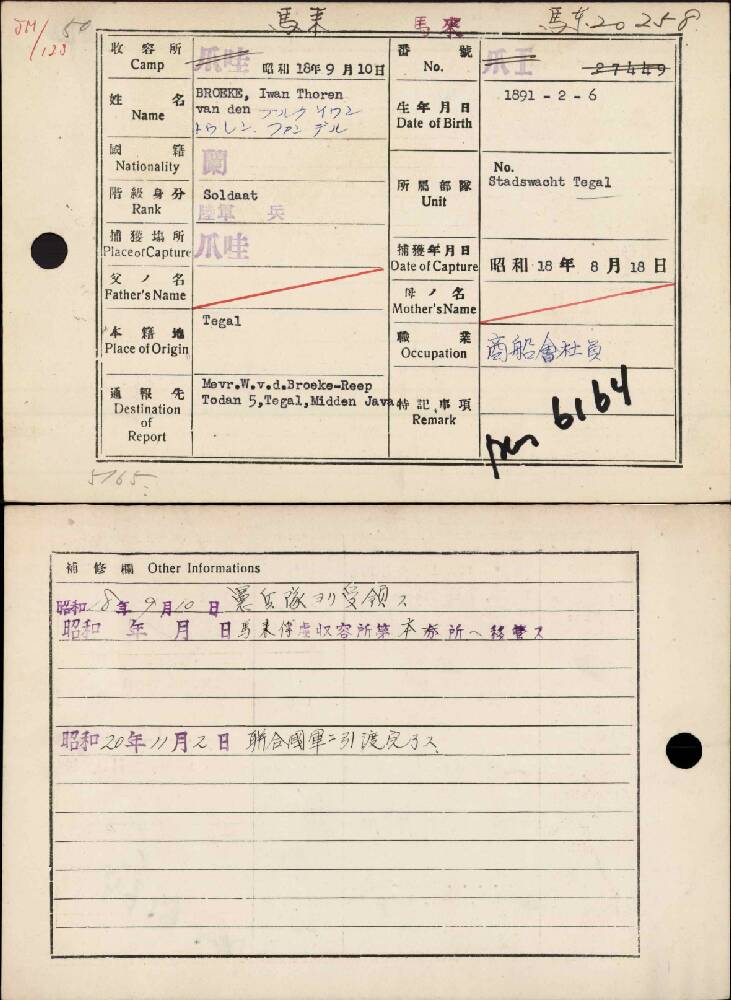 JM/123 50 馬来 馬來 馬来20258
收容所 Camp 爪哇 昭和18年9月10日 番號 No. 爪王 27449
姓名 Name BROEKE, Iwan Thoren
van den ブルク イワン
トウレン. ファン デル
生年月日 Date of Birth 1891 - 2 - 6
國籍 Nationality 蘭
階級身分 Rank Soldaat
陸軍 兵
所屬部隊 Unit No.
Stadswacht Tegal
捕獲塲所 Place of Capture 爪哇
捕獲年月日 Date of Capture 昭和18年8月18日
父ノ名 Father's Name
母ノ名 Mother's Name
本籍地 Place of Origin Tegal
職業 Occupation 商船會社員
通報先 Destination of Report Mevr.W.v.d.Broeke-Reep
Todan 5,Tegal,Midden Java
特記事項 Remark 6164
5165.
補修欄 Other Informations
昭和18年9月10日 憲兵隊ヨリ受領ス
昭和 年 月 日 馬来俘虜収容所第本分所ヘ移管ス
昭和20年11月2日 聯合國軍ニ引渡完了ス